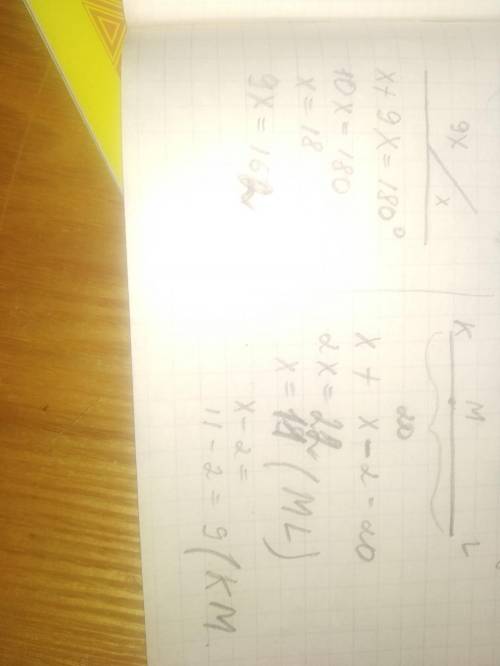 9x
x
x + 9x = 180°
10x = 180
x = 18
9x = 162
K M L
20
x + x - 2 = 20
2x = 22
x = 11 (ML)
x - 2 =
11 - 2 = 9 (KM